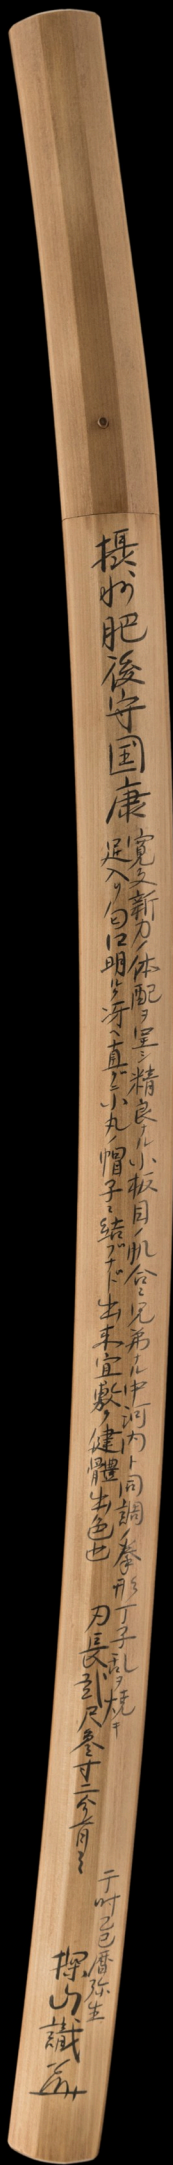 摂州肥後守国康
寛文新刀ノ体配ヲ呈シ精良ナル小板目ノ肌合ニ兄弟ナル中河内ト同調ノ拳形丁子乱ヲ焼キ
足入リ匂口明ルク冴ヘ直グニ小丸ノ帽子ニ結ブナド出来宜敷ク健體出色也
刃長弐尺参寸二分有之
于时己巳暦弥生
探山識